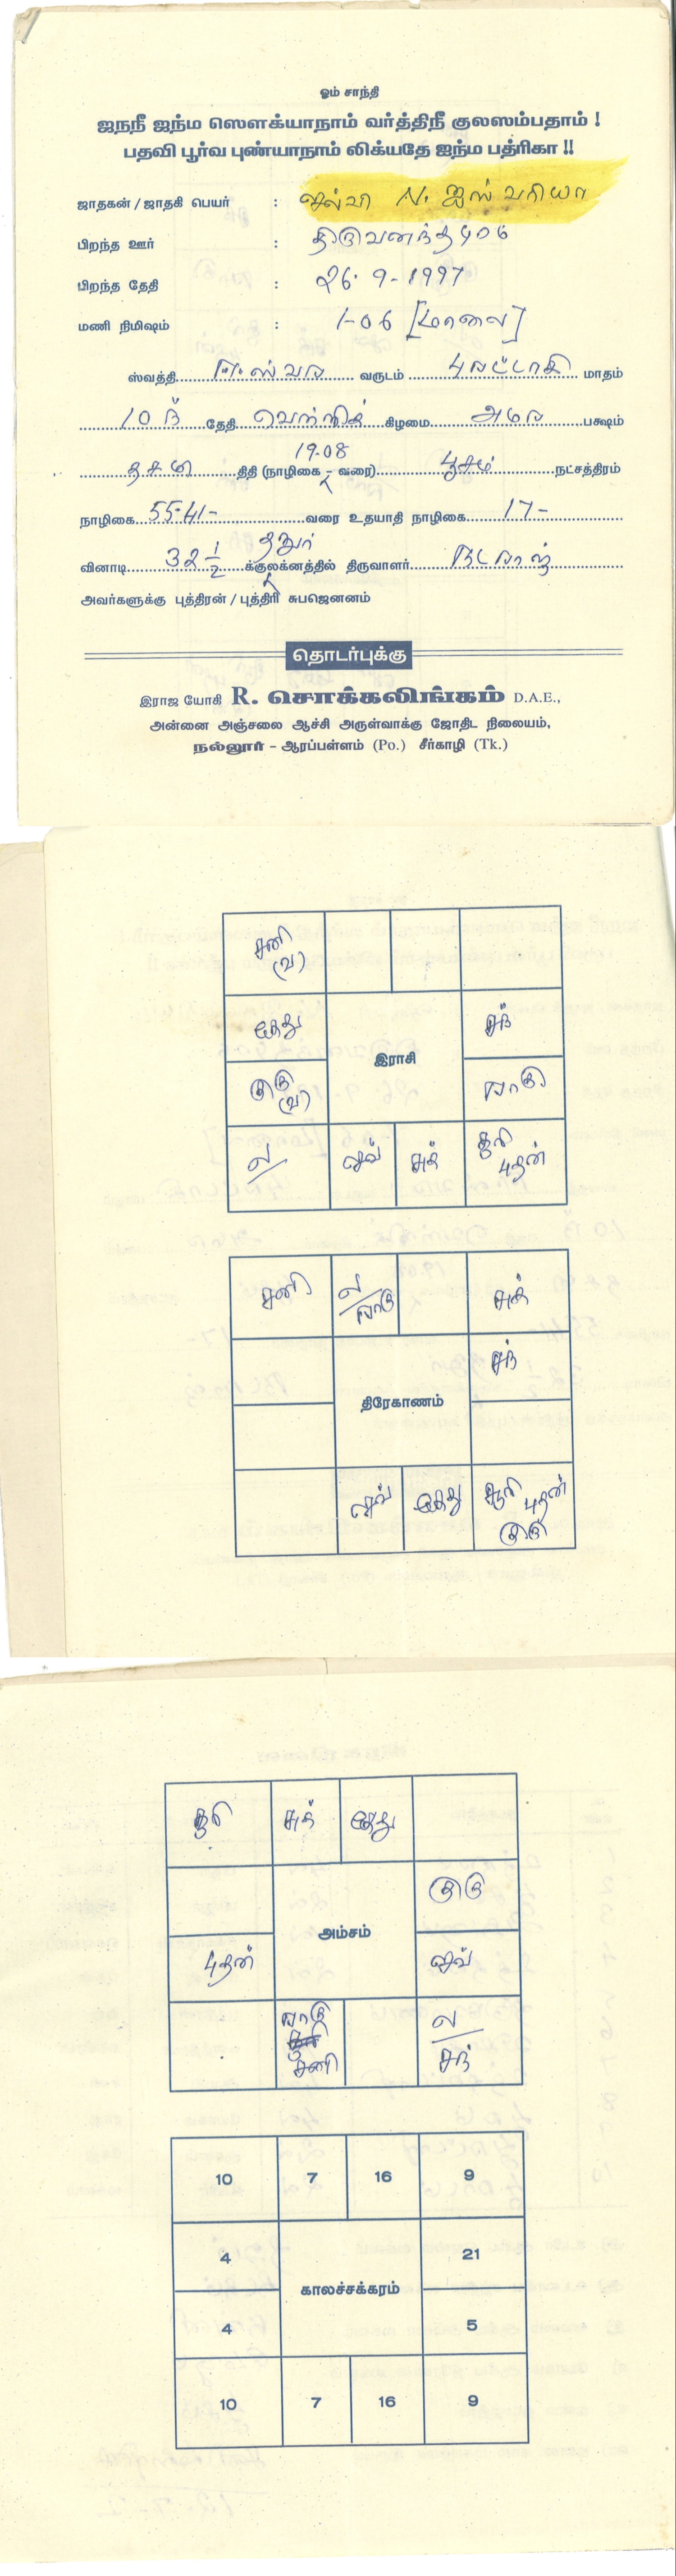 ஓம் சாந்தி
ஜநநீ ஜந்ம ஸௌக்யாநாம் வர்த்திநீ குலஸம்பதாம் !
பதவி பூர்வ புண்யாநாம் லிக்யதே ஜந்ம பத்ரிகா !!
ஜாதகன் / ஜாதகி பெயர் : செல்வி N. ஐஸ்வரியா
பிறந்த ஊர் : திருவனந்தபுரம்
பிறந்த தேதி : 26-9-1997
மணி நிமிஷம் : 1-06 [மாலை]
ஸ்வத்தி ஈஸ்வர வருடம் புரட்டாசி மாதம்
10 ந் தேதி வெள்ளிக் கிழமை அமர பக்ஷம்
தசமி திதி (நாழிகை 19-08 வரை) பூசம் நட்சத்திரம்
நாழிகை 55-41- வரை உதயாதி நாழிகை 17-
வினாடி 32 1/2 க்கு தனுர் லக்னத்தில் திருவாளர் நடராஜ்
அவர்களுக்கு புத்திரன் / புத்திரி சுபஜெனனம்
தொடர்புக்கு
இராஜ யோகி R. சொக்கலிங்கம் D.A.E.,
அன்னை அஞ்சலை ஆச்சி அருள்வாக்கு ஜோதிட நிலையம்,
நல்லூர் - ஆரப்பள்ளம் (Po.) சீர்காழி (Tk.)
சனி (வ)
கேது சந்
இராசி
குரு (வ) ராகு
ல செவ் சுக் சூரி புதன்
சனி ல/ராகு சுக்
சந்
திரேகாணம்
செவ் கேது சூரி புதன் குரு
சூரி சுக் கேது
குரு
அம்சம்
புதன் செவ்
ராகு சனி ல/சந்
10 7 16 9
4 21
காலச்சக்கரம்
4 5
10 7 16 9